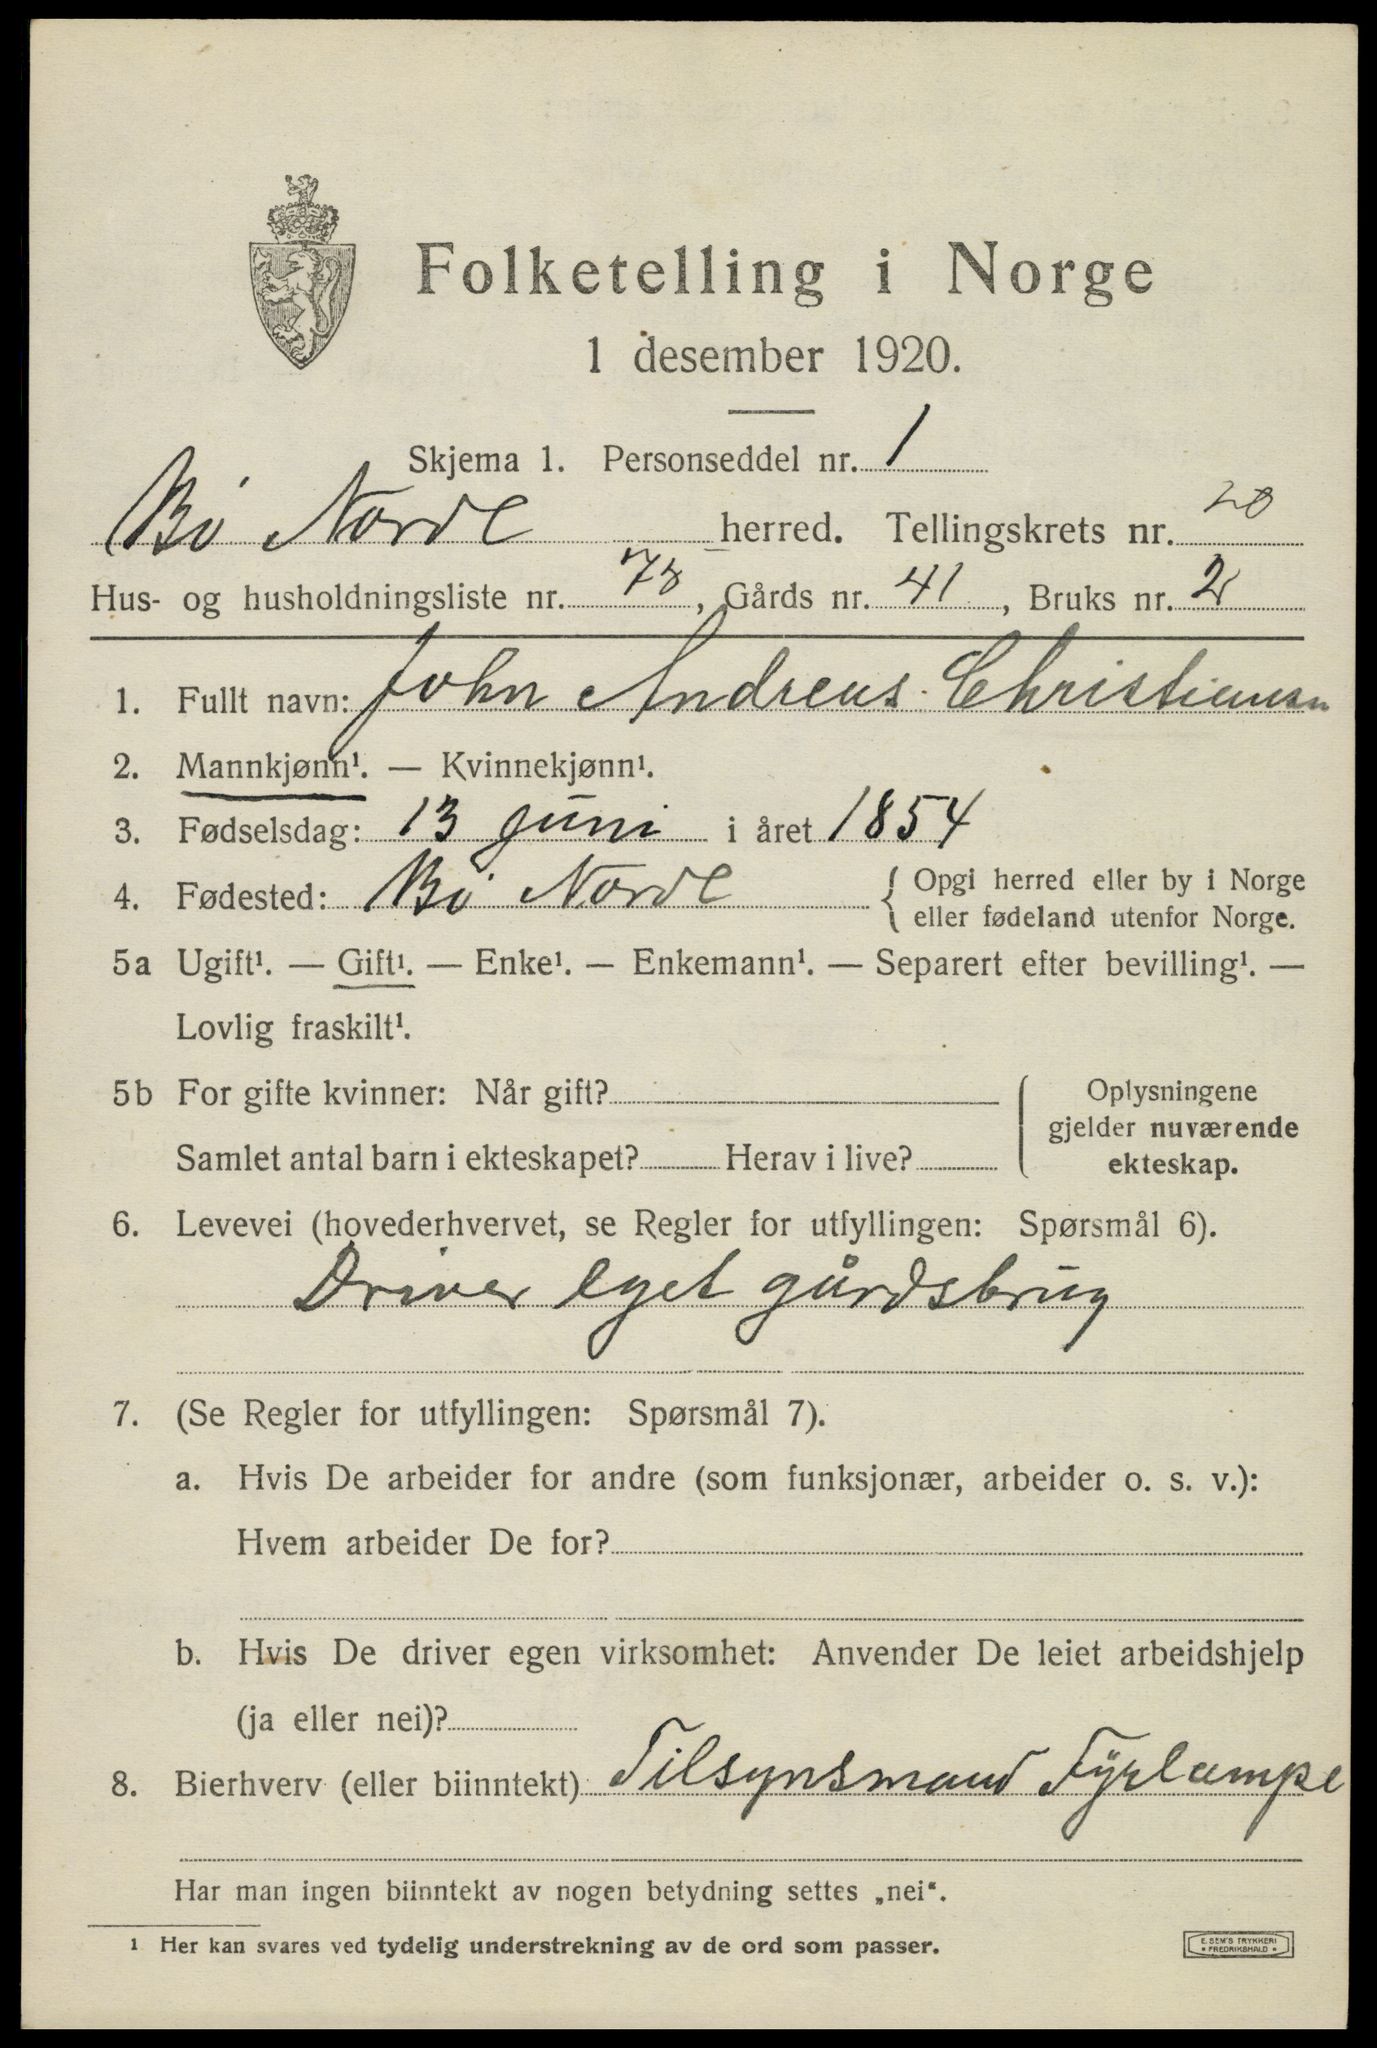 Folketelling i Norge
1 desember 1920.
Skjema 1. Personseddel nr. 1
Bö Nordl herred. Tellingskrets nr. 20
Hus- og husholdningsliste nr. 78, Gårds nr. 41, Bruks nr. 2
1. Fullt navn: John Andreas Christiansn
2. Mannkjønn¹. — Kvinnekjønn¹.
3. Fødselsdag: 13 juni i året 1854
4. Fødested: Bö Nordl { Opgi herred eller by i Norge
eller fødeland utenfor Norge.
5a Ugift¹. — Gift¹. — Enke¹. — Enkemann¹. — Separert efter bevilling¹. —
Lovlig fraskilt¹.
5b For gifte kvinner: Når gift? Oplysningene
gjelder nuværende
Samlet antal barn i ekteskapet? Herav i live? ekteskap.
6. Levevei (hovederhvervet, se Regler for utfyllingen: Spørsmål 6).
Driver eget gårdsbrug
7. (Se Regler for utfyllingen: Spørsmål 7).
a. Hvis De arbeider for andre (som funksjonær, arbeider o. s. v.):
Hvem arbeider De for?
b. Hvis De driver egen virksomhet: Anvender De leiet arbeidshjelp
(ja eller nei)?
8. Bierhverv (eller biinntekt) Tilsynsmand Fyrlampe
Har man ingen biinntekt av nogen betydning settes „nei“.
¹ Her kan svares ved tydelig understrekning av de ord som passer.
E. SEM'S TRYKKERI
FREDRIKSHALD